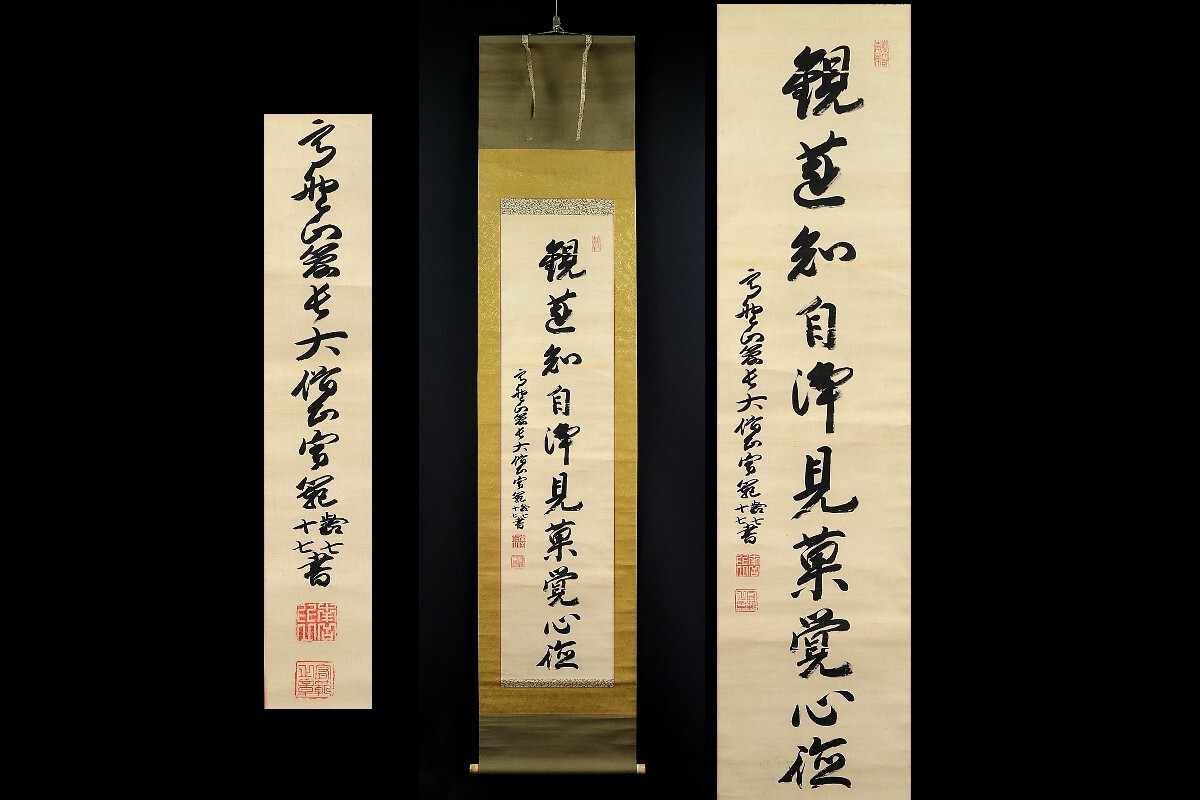 高野山管長大僧正宥範齢七十七書
観蓮知自浄見菓覚心徳
高野山管長大僧正宥範齢七十七書
観蓮知自浄見菓覚心徳
高野山管長大僧正宥範齢七十七書